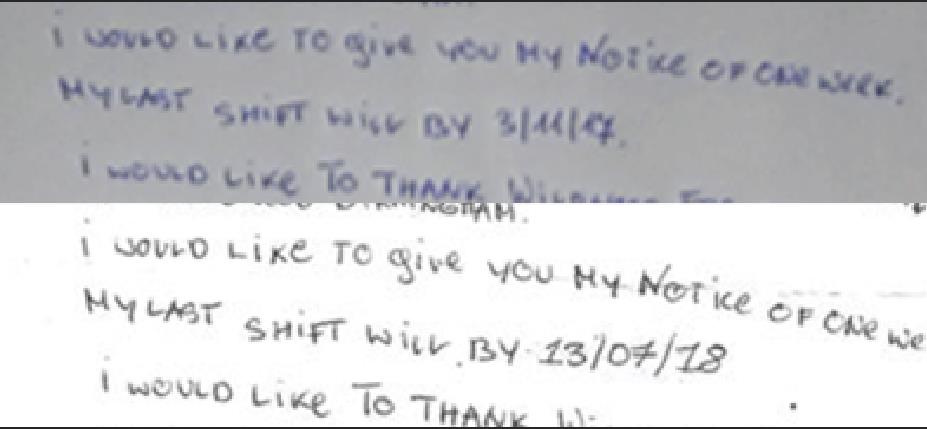 i WOULD LiKe TO give YOU MY NOTice OF ONe WeeK.
MY LAST SHiFT WiLL BY 3/11/17.
i WOULD LiKe TO THANK
i WOULD LiKe TO give YOU MY NOTice OF ONe We
MY LAST SHiFT WiLL BY 13/07/18
i WOULD LiKe TO THANK